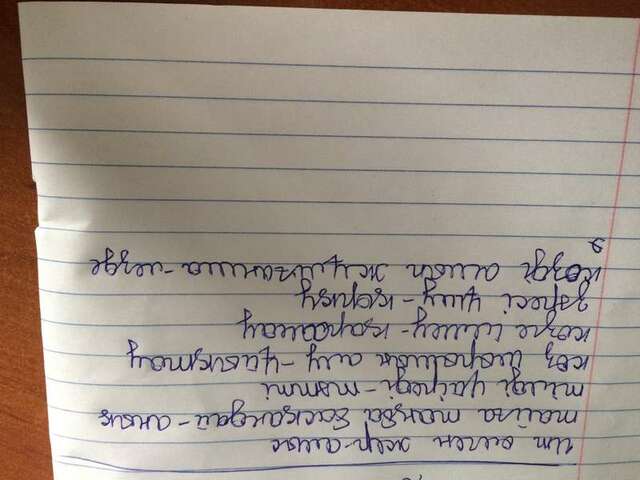 Ит өлген жер-алыс
тайға таңба басқандай-анық
тілді үйіреді-тәтті
көз шырымын алу-ұйықтау
көзге ілмеу-қарамау
зәресі ұшу-қорқу
көзді ашып жұмғанша-лезде